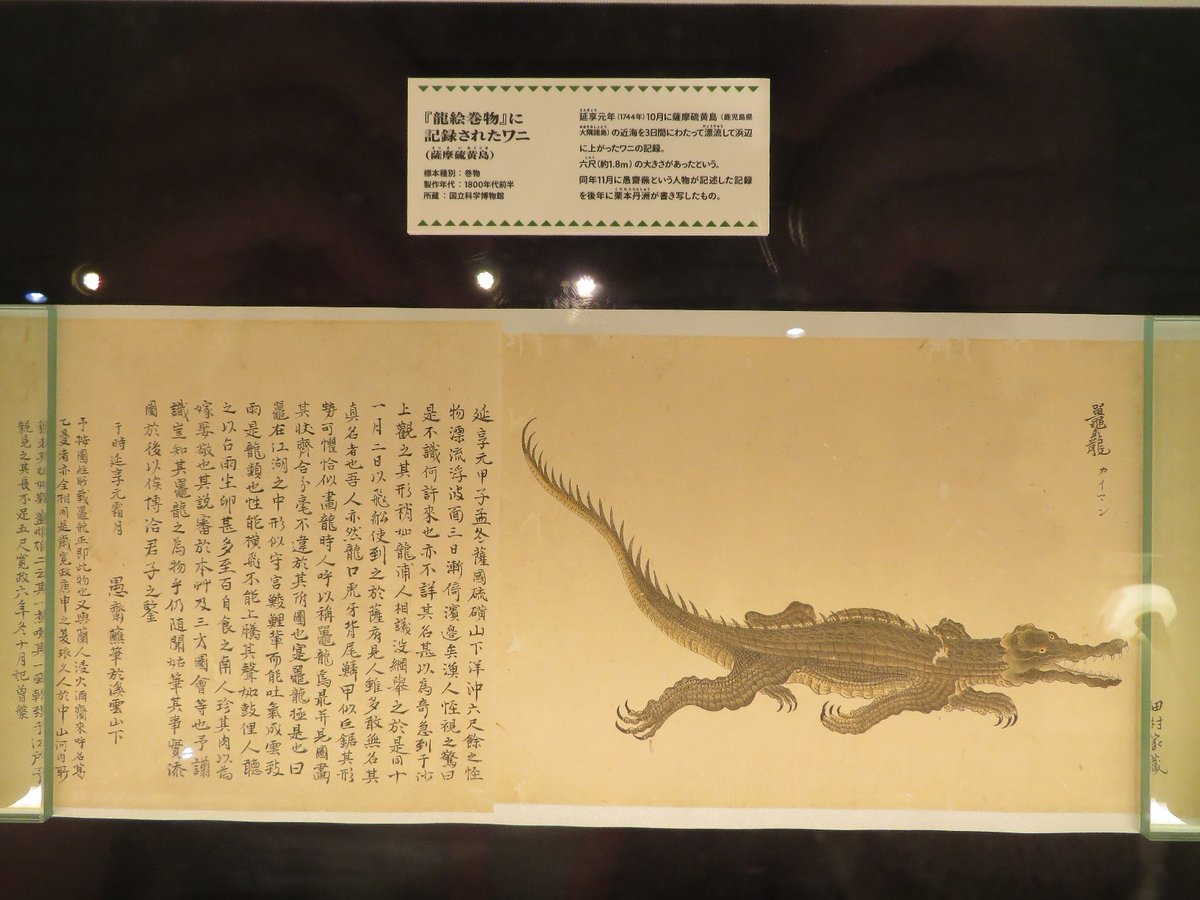 『龍絵巻物』に
記録されたワニ
(薩摩硫黄島)
標本種別：巻物
製作年代：1800年代前半
所蔵：国立科学博物館
延享元年(1744年)10月に薩摩硫黄島(鹿児島県
大隅諸島)の近海を3日間にわたって漂流して浜辺
に上がったワニの記録。
六尺(約1.8m)の大きさがあったという。
同年11月に愚齋蘓という人物が記述した記録
を後年に栗本丹洲が書き写したもの。
鼉龍 カイマン
田村家蔵
延享元甲子孟冬薩國硫磺山下洋沖六尺餘之怪
物漂流浮波面三日漸倚濱邉矣漁人怪視之驚曰
是不識何許来也亦不詳其名甚以為奇怠到于沙
上觀之其形稍如龍浦人相議設網舉之於是同十
一月二日以飛舩使到之於薩府見人雖多敢無名其
真名者也吾人亦然龍口虎牙背尾鱗甲似巨鋸其形
勢可懼恰似畵龍時人呼以稱鼉龍焉最并見圖畵
其状齊合分毫不違於其附圖也寔鼉龍極是也曰
鼉在江湖之中形似守宮鯪鯉輩而能吐氣成雲致
雨是龍類也性能横飛不能上騰其聲如鼓俚人聽
之以占雨生卵甚多至百自食之南人珍其肉以為
嫁娶敬也其説審於本艸及三才圖會等也予謭
識豈知其鼉龍之為物乎仍随聞姑筆其事實添
圖於後以俟博洽君子之鑒
于時延享元霜月 愚齋蘓筆於溪雲山下